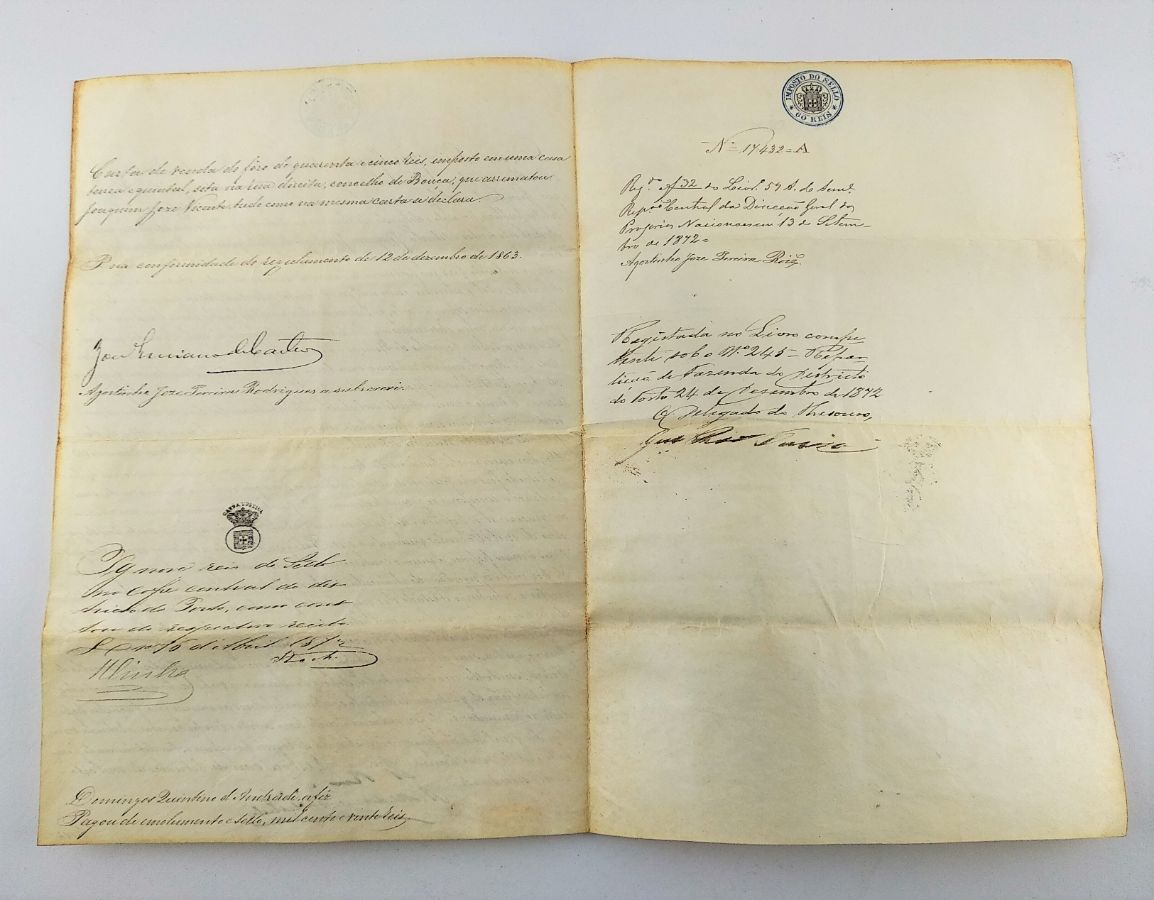 Carta de venda do fôro de quarenta e cinco reis, imposto em uma casa
terrea e quintal, sita na rua direita, concelho de Bouça, que arrematou
Joaquim José Vicente tudo como na mesma carta se declara.
P na conformidade do regulamento de 12 de dezembro de 1863.
José Luciano de Castro
Agostinho José Ferreira Rodrigues a subscrevi.
Pg nove reis de Sello
no cofre central do dis-
tricto do Porto, como cons-
ta do respectivo recibo
de Abril 1872
Domingos Quintino d'Andrade, a fez
Pagou de emolumento e sello, mil cento e vinte reis,
IMPOSTO DO SELLO
60 REIS
Nº 17432=A
Reg.º Af 32 do Livº 59 A. da 
Repᵃᵐ Central da Direcção Geral dos
Proprios Nacionaes em 13 de Setem-
bro de 1872=
Agostinho José Ferreira Roiz
Registada no Livro compe
tente sob o Nº 245 - Repar-
tição de Fazenda do districto
do Porto 24 de Dezembro de 1872
O Delegado do Thesouro,